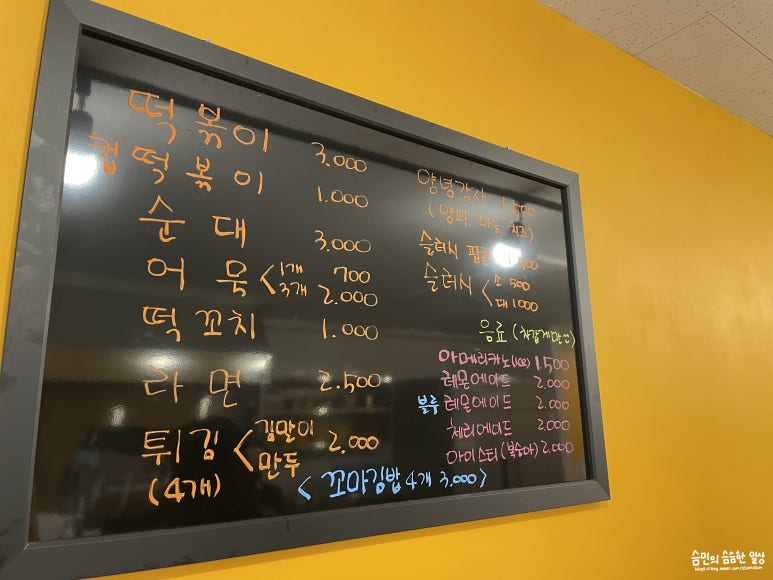 떡볶이 3,000
컵떡볶이 1.000
순대 3,000
어묵 < 1개 700
3개 2.000
떡꼬치 1.000
라면 2.500
튀김 < 김말이 2.000
만두
(4개)
< 꼬마김밥 4개 3,000 >
양념감자 1,500
(양파, 마늘, 치즈)
슬러시
슬러시 < 소 500
대 1000
음료 (차갑게만 )
아메리카노(ICE) 1.500
레몬에이드 2.000
블루레몬에이드 2.000
체리에이드 2.000
아이스티(복숭아) 2.000
슴민의 슴슴한 일상